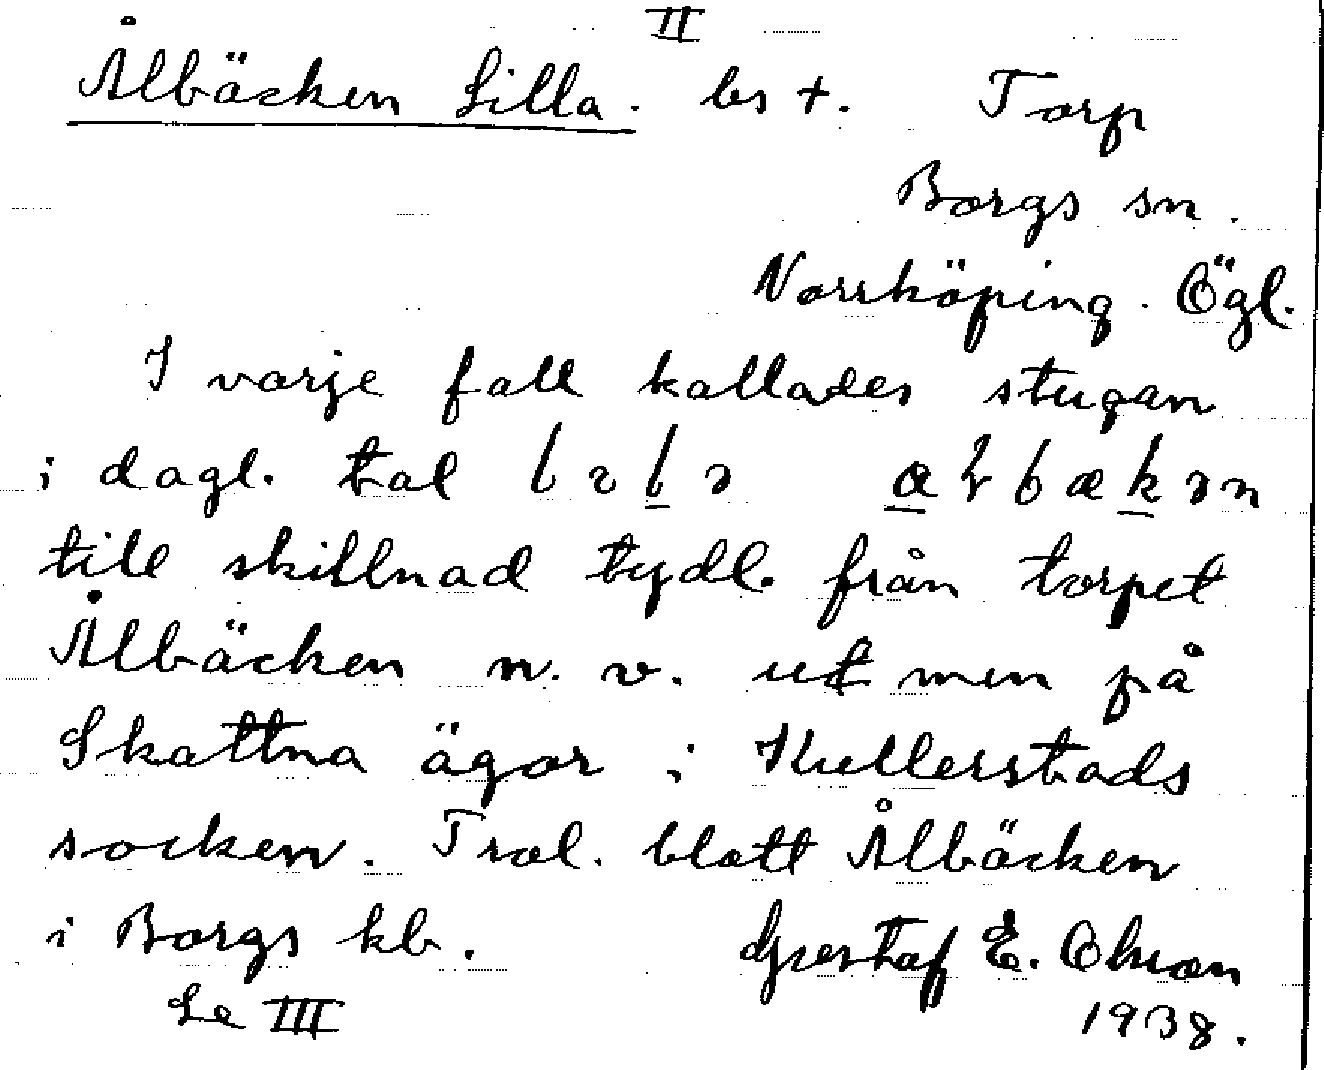 II
Ålbäcken Lilla. les t. Torp
Borgs sn.
Norrköping. Ögl.
I varje fall kallades stugan
i dagl. tal
till skillnad tydl. från torpet
Ålbäcken n. v. ut men på
Skattna ägor i Kullerstads
socken. Trol. blott Ålbäcken
i Borgs kb. Gustaf E. Ohson
Se III 1938.